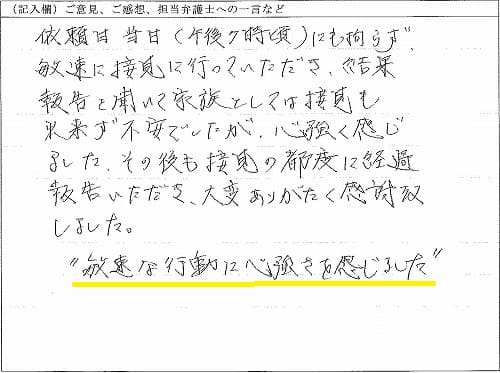 (記入欄)ご意見、ご感想、担当弁護士への一言など
依頼日当日(午後7時頃)にも拘らず、
敏速に接見に行っていただき、結果
報告を聞いて家族としては接見も
出来ず不安でしたが、心強く感じ
ました。その後も接見の都度に経過
報告いただき、大変ありがたく感謝致
しました。
"敏速な行動に心強さを感じました"